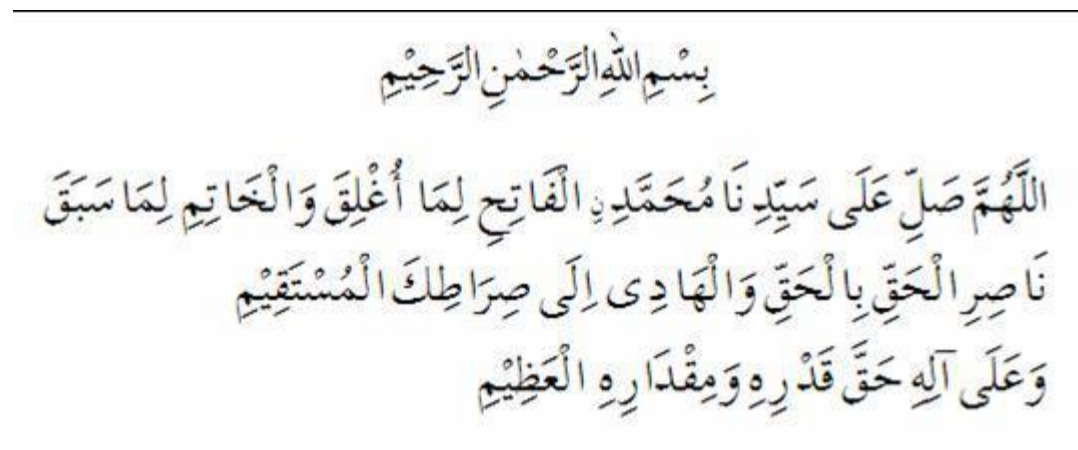 بِسْمِ اللّٰهِ الرَّحْمٰنِ الرَّحِيْمِ
اللَّهُمَّ صَلِّ عَلَى سَيِّدِنَا مُحَمَّدِنِ الْفَاتِحِ لِمَا أُغْلِقَ وَالْخَاتِمِ لِمَا سَبَقَ
نَاصِرِ الْحَقِّ بِالْحَقِّ وَالْهَادِى اِلَى صِرَاطِكَ الْمُسْتَقِيْمِ
وَعَلَى آلِهِ حَقَّ قَدْرِهِ وَمِقْدَارِهِ الْعَظِيْمِ